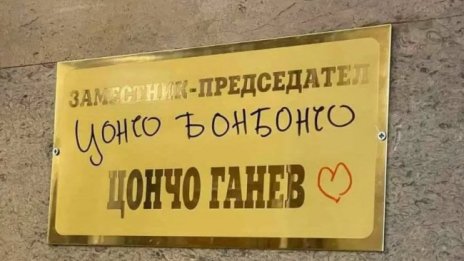 ЗАМЕСТНИК-ПРЕДСЕДАТЕЛ
ЦОНЧО БОНБОНЧО
ЦОНЧО ГАНЕВ